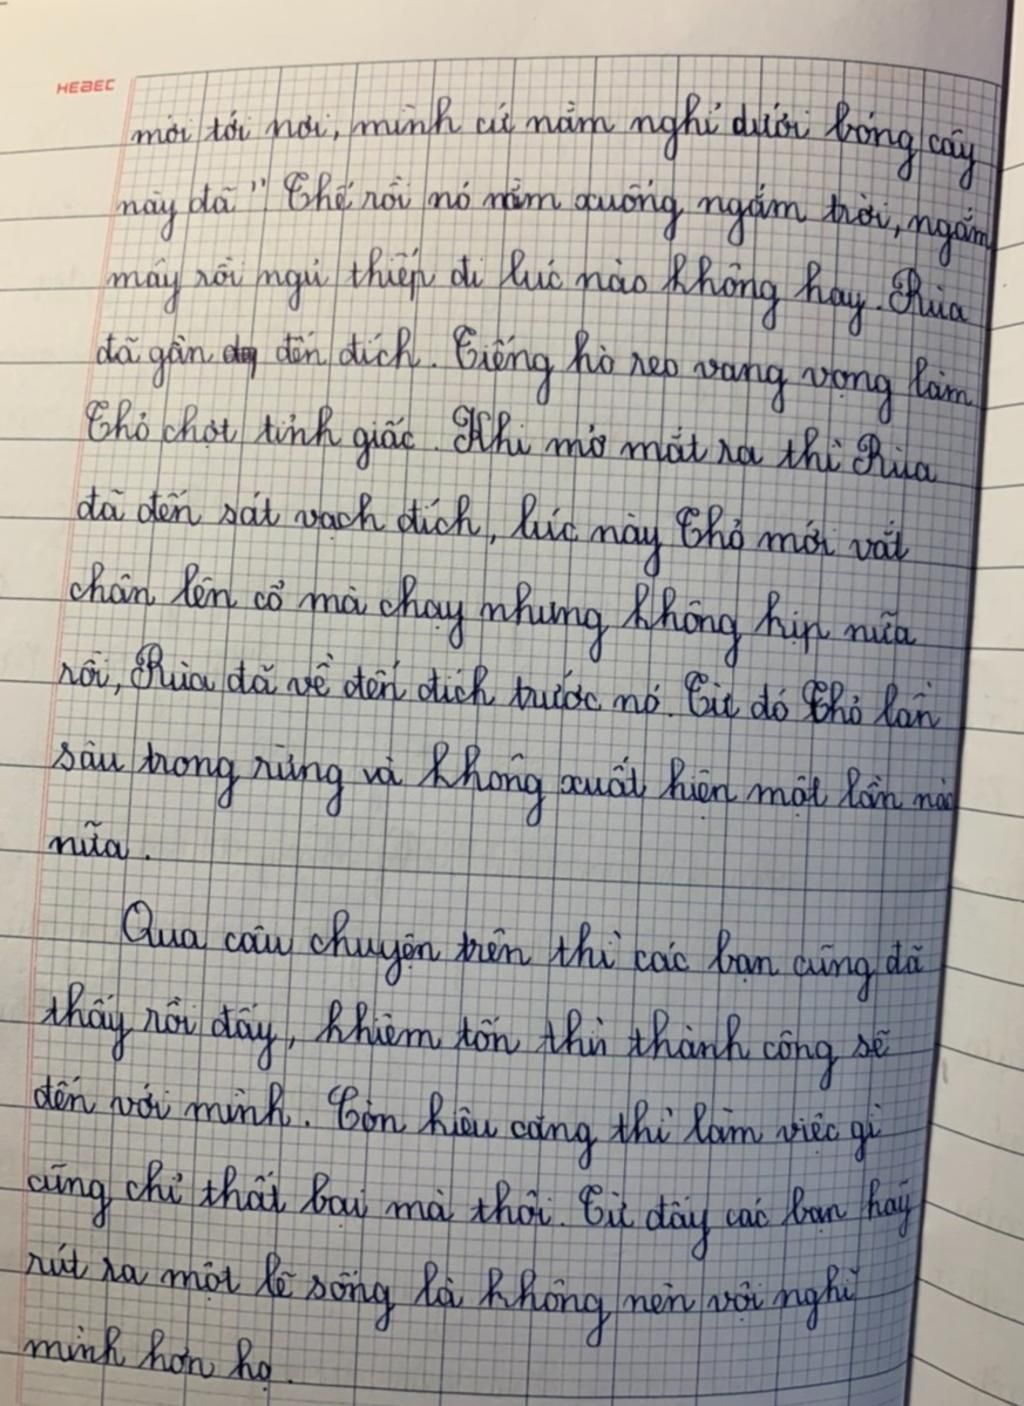 HEBEC
mới tới nơi, mình cứ nằm nghỉ dưới bóng cây
này đã" Thế rồi nó nằm xuống ngắm trời, ngắm
mây rồi ngủ thiếp đi lúc nào không hay. Rùa
đã gần đến đích. Tiếng hò reo vang vọng làm
Thỏ chợt tỉnh giấc. Khi mở mắt ra thì Rùa
đã đến sát vạch đích, lúc này Thỏ mới vắt
chân lên cổ mà chạy nhưng không kịp nữa
rồi, Rùa đã về đến đích trước nó. Từ đó Thỏ lẩn
sâu trong rừng và không xuất hiện một lần nào
nữa.
Qua câu chuyện trên thì các bạn cũng đã
thấy rồi đấy, khiêm tốn thì thành công sẽ
đến với mình. Còn kiêu căng thì làm việc gì
cũng chỉ thất bại mà thôi. Từ đây các bạn hãy
rút ra một lẽ sống là không nên vội nghĩ
mình hơn họ.